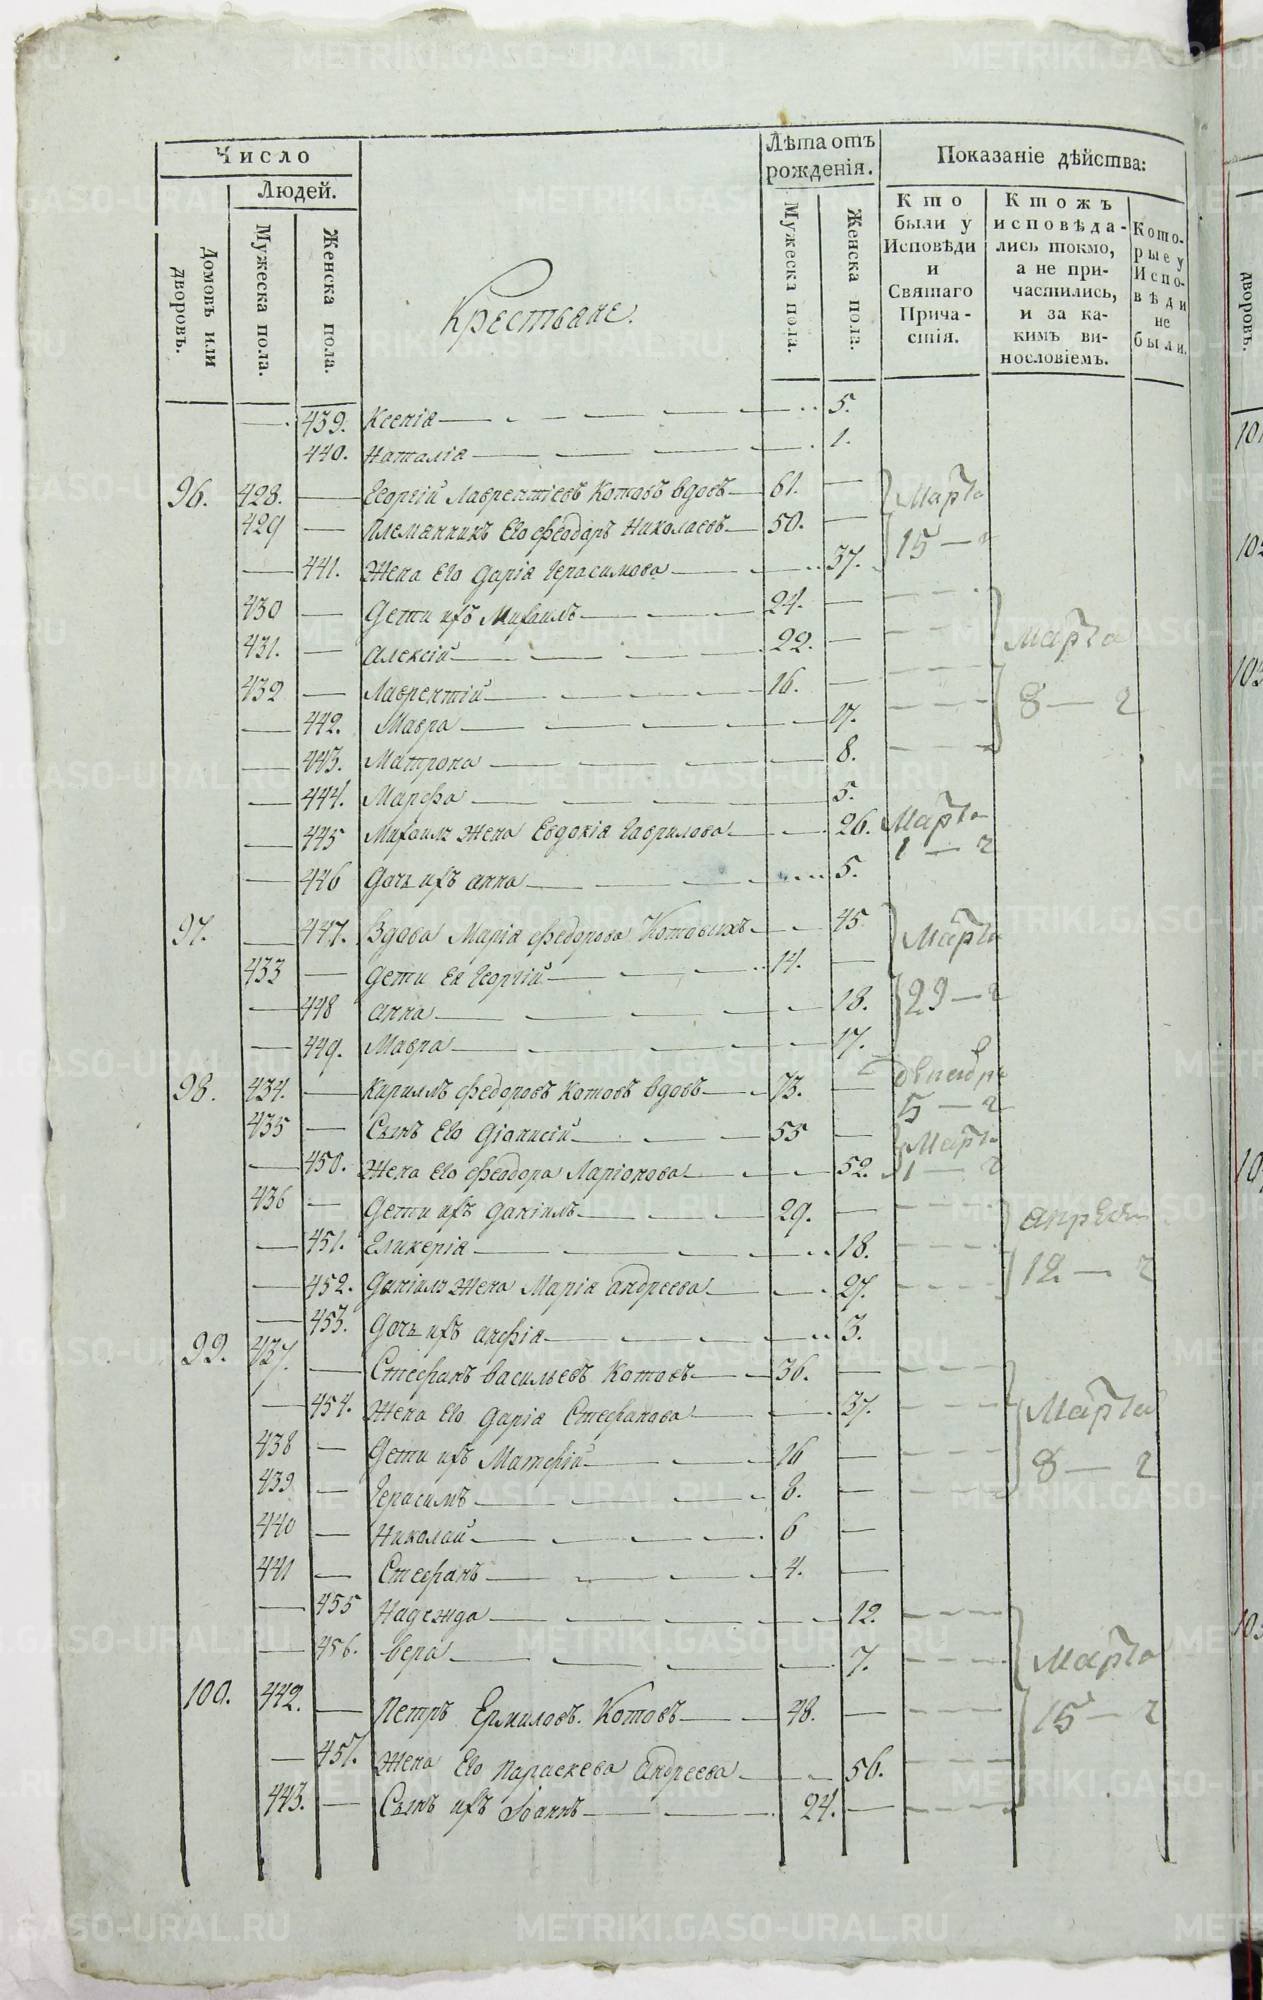 Число
Людей.
Домовъ или дворовъ.
Мужеска пола.
Женска пола.
Крестьяне.
Лѣта отъ рожденія.
Мужеска пола.
Женска пола.
Показаніе дѣйства:
Кто были у Исповѣди и Святаго Причастія.
Ктожъ исповѣдались токмо, а не причастились, и за какимъ винословіемъ.
Которые у Исповѣди не были.
439. Ксенія 5.
440. Наталія 1.
96. 428. Георгій Лаврентіевъ Котовъ вдовъ 61. Марта
429 Племянникъ Его Феодоръ Николаевъ 50. 15
441. Жена Его Дарія Герасимова 37.
430 Дети ихъ Михаилъ 24.
431. Алексій 22. Марта
432 Лаврентій 16. 8
442. Мавра 17.
443. Матрона 8.
444. Марфа 5.
445 Михаилъ Жена Евдокія Гаврилова 26. Марта 1
446 Дочь ихъ Анна 5.
97. 447. Вдова Марія Федорова Котовыхъ 45 Марта
433 Дети Ея Георгій 14. 29
448 Анна 18.
449. Мавра 17.
98. 434. Кириллъ Федоровъ Котовъ вдовъ 73. декабря 5
435 Сынъ Его Діонисій 55 Марта
450. Жена Его Феодора Ларіонова 52. 1
436 Дети ихъ Даніилъ 29. апреля
451. Гликерія 18. 12
452. Даніилъ Жена Марія Андреева 27.
453. Дочь ихъ Анфія 3.
99. 437. Стефанъ Васильевъ Котовъ 36.
454. Жена Его Дарія Стефанова 37. Марта
438 Дети ихъ Матфій 16 8
439 Герасимъ 8.
440 Николай 6
441 Стефанъ 4.
455 Надежда 12.
456. Вера 7. Марта
100. 442. Петръ Ермиловъ. Котовъ 48. 15
457. Жена Его Параскева Андреева 56.
443. Сынъ ихъ Іоаннъ 24.
дворовъ.
METRIKI.GASO-URAL.RU